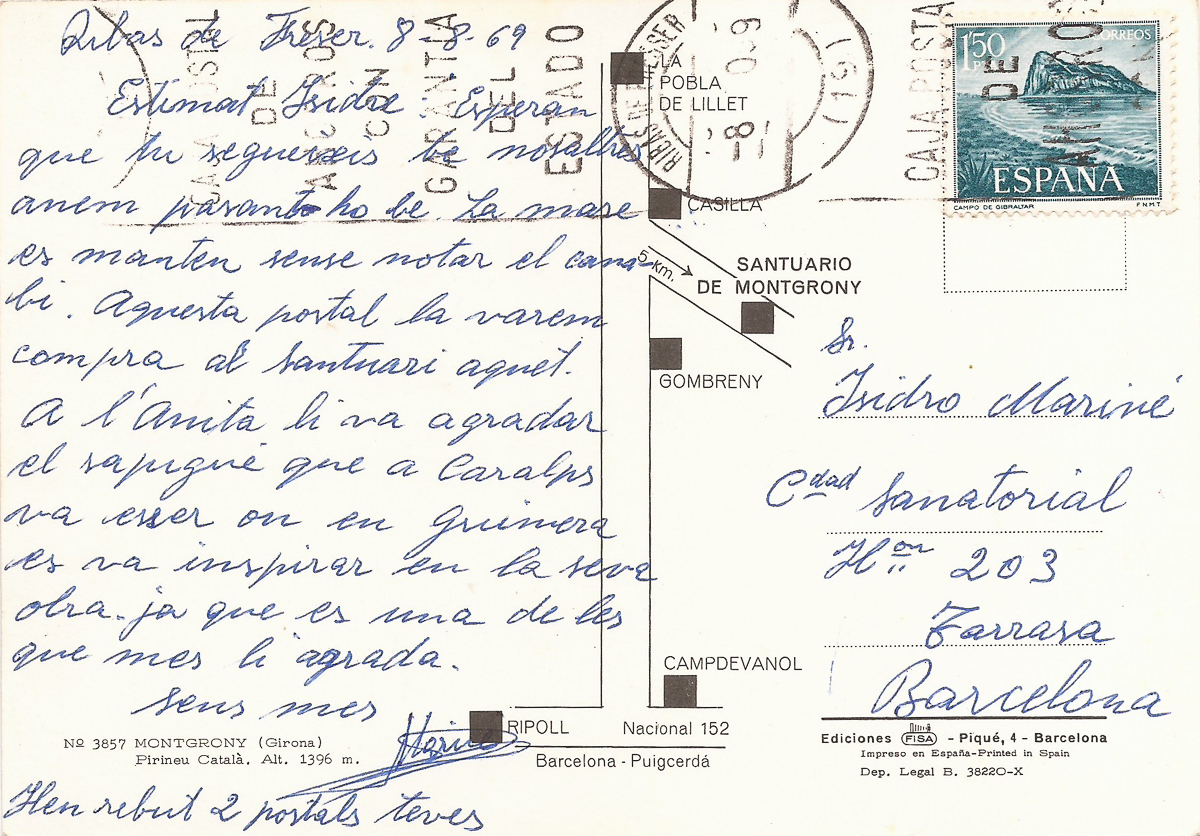 Ribas de Freser. 8-8-69
Estimat Isidre: Esperan
que tu segueixis be nosaltres
anem pasant-ho be. La mare
es manten sense notar el cam-
bi. Aquesta postal la varem
compra al Santuari aquet.
A l'Anita li va agradar
el sapigué que a Caralps
va esser on en Guimera
es va inspirar en la seva
obra. ja que es una de les
que mes li agrada.
Sens mes
Nº 3857 MONTGRONY (Girona)
Pirineu Català. Alt. 1396 m.
Hen rebut 2 postals teves
CAJA POSTAL
DE
AHORROS
CON
GARANTIA
DEL
ESTADO
LA
POBLA
DE LILLET
CASILLA
5 km.
SANTUARIO
DE MONTGRONY
GOMBRENY
CAMPDEVANOL
RIPOLL
Nacional 152
Barcelona - Puigcerdá
CAJA POSTA
DE
AHORRO
1'50
PTS
CORREOS
ESPAÑA
CAMPO DE GIBRALTAR
F.N.M.T.
Sr.
Isidro Mariné
Cdad Sanatorial
Hon 203
Tarrasa
Barcelona
Ediciones FISA - Piqué, 4 - Barcelona
Impreso en España-Printed in Spain
Dep. Legal B. 38220-X